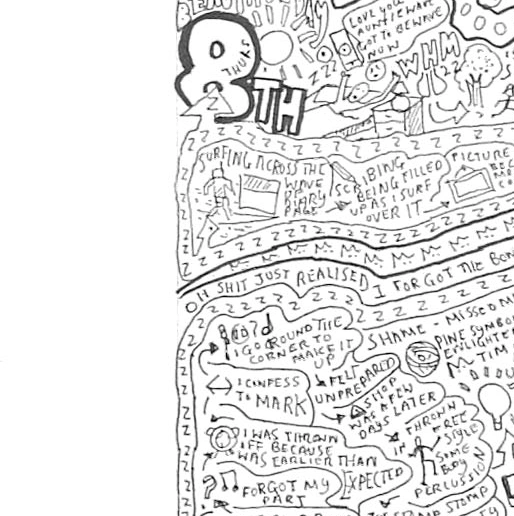 8TH
THURS
LOVE YOU
AUNTIE WAVE
GOT TO BE WAVE
NOW
WHM
SURFING ACROSS THE
WAVE
OF
DIARY
PAGE
SCRIBING
BEING FILLED
UP AS I SURF
OVER IT
PICTURE
OH SHIT JUST REALISED I FORGOT THE BON
I GO ROUND THE
CORNER TO
MAKE IT
UP
SHAME - MISSED M
I CONFESS
TO MARK
I FELT
UNPREPARED
SHOP
WAS A FEW
DAYS LATER
PINE SYMBO
ENLIGHTE
M TIM
I WAS THROWN
IFF BECAUSE
WAS EARLIER THAN
EXPECTED
THROWN
IF FREE
STYLE
SOME
BODY
PERCUSSION
FORGOT MY
PART
STAMP STOMP